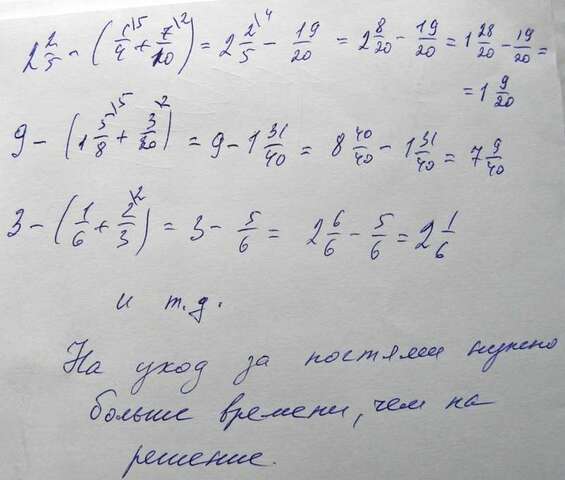 2 2/5 - (1/4\5 + 7/10\2) = 2 2/5\4 - 19/20 = 2 8/20 - 19/20 = 1 28/20 - 19/20 =
= 1 9/20
9 - (1 5/8\5 + 3/20\2) = 9 - 1 31/40 = 8 40/40 - 1 31/40 = 7 9/40
3 - (1/6 + 2/3\2) = 3 - 5/6 = 2 6/6 - 5/6 = 2 1/6
и т.д.
На уход за постями нужно
больше времени, чем на
решение.